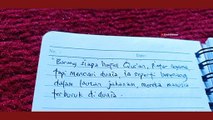 No.
Date
"Barang siapa hapal Qur'an, pintar agama
tapi mencari dunia, ia seperti berenang
dalam lautan jahanam, mereka manusia
terburuk di dunia.